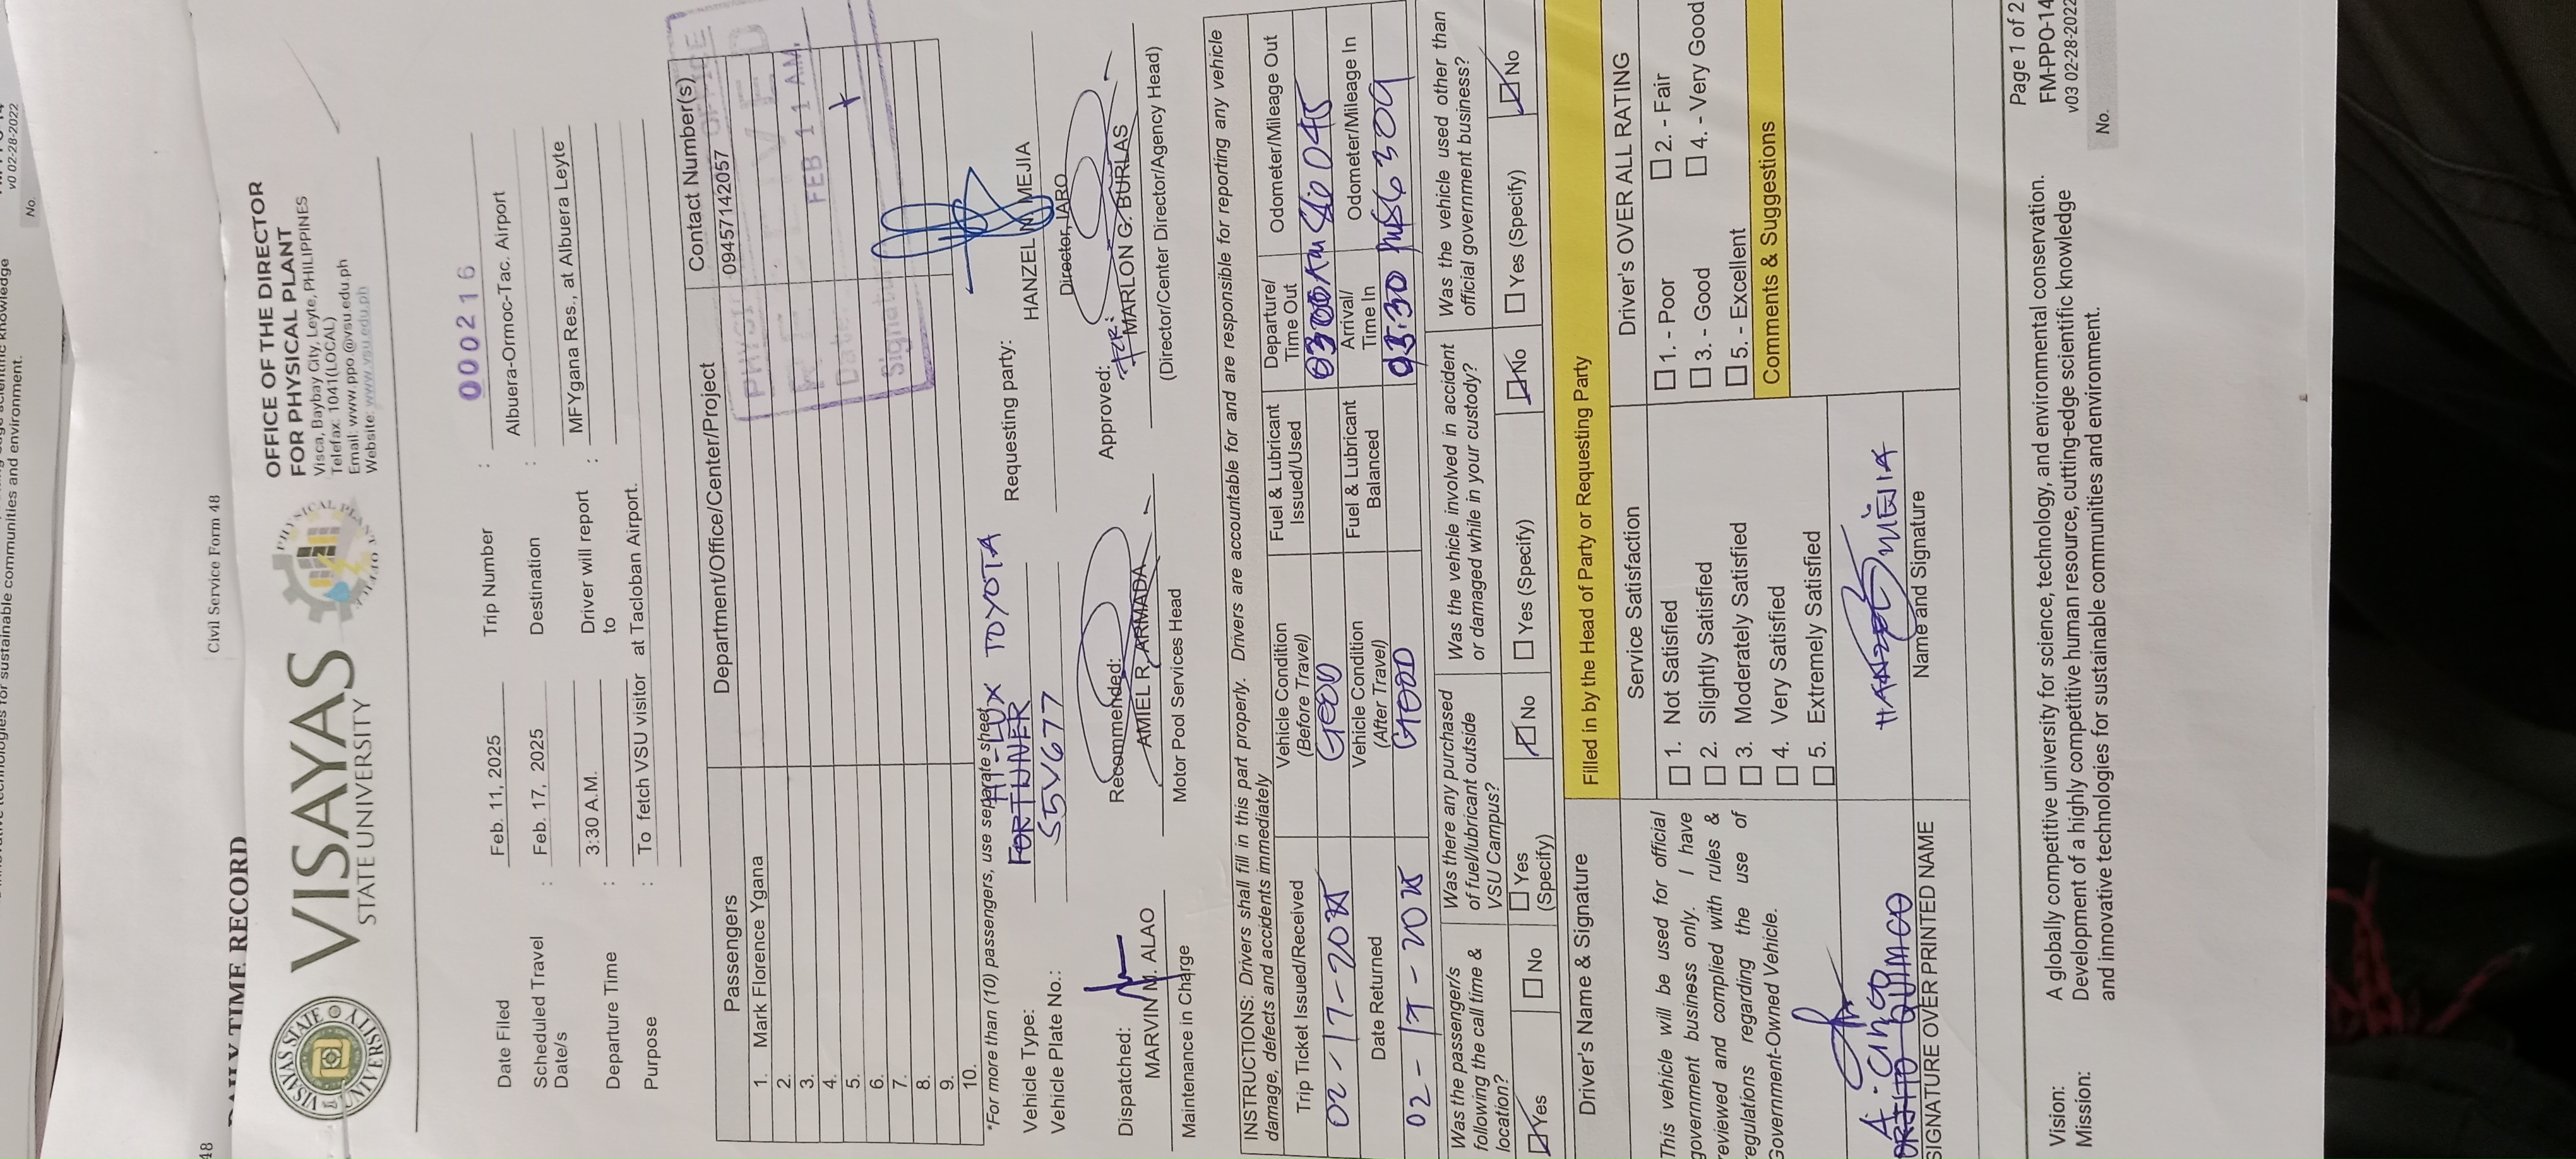 v0 02-28-2022
No.
knowledge
sustainable communities and environment.
48
Civil Service Form 48
DAILY TIME RECORD
VISAYAS STATE UNIVERSITY
VISAYAS
STATE UNIVERSITY
OFFICE OF THE DIRECTOR
FOR PHYSICAL PLANT
Visca, Baybay City, Leyte, PHILIPPINES
Telefax: 1041(LOCAL)
Email: www.ppo.@vsu.edu.ph
Website: www.vsu.edu.ph
Date Filed Feb. 11, 2025 Trip Number : 000216
Scheduled Travel Date/s : Feb. 17, 2025 Destination : Albuera-Ormoc-Tac. Airport
Departure Time : 3:30 A.M. Driver will report to : MFYgana Res., at Albuera Leyte
Purpose : To fetch VSU visitor at Tacloban Airport.
Passengers Department/Office/Center/Project Contact Number(s)
1. Mark Florence Ygana 09457142057
2.
3.
4.
5.
6.
7.
8.
9.
10.
FEB 11 AM.
Date
Signatu
*For more than (10) passengers, use separate sheet
Vehicle Type: FORTUNER HI-LUX TOYOTA
Vehicle Plate No.: S5V677
Requesting party:
HANZEL N. MEJIA
Director, IARO
Dispatched:
MARVIN M. ALAO
Maintenance in Charge
Recommended:
AMIEL R. ARMADA
Motor Pool Services Head
Approved:
FOR: MARLON G. BURLAS
(Director/Center Director/Agency Head)
INSTRUCTIONS: Drivers shall fill in this part properly. Drivers are accountable for and are responsible for reporting any vehicle
damage, defects and accidents immediately
Trip Ticket Issued/Received Vehicle Condition (Before Travel) Fuel & Lubricant Issued/Used Departure/ Time Out Odometer/Mileage Out
02-17-2025 GOOD
Date Returned Vehicle Condition (After Travel) Fuel & Lubricant Balanced Arrival/ Time In Odometer/Mileage In
02-17-2025 GOOD
Was the passenger/s following the call time & location?
Was there any purchased of fuel/lubricant outside VSU Campus?
Was the vehicle involved in accident or damaged while in your custody?
Was the vehicle used other than official government business?
☑ Yes ☐ No ☐ Yes (Specify) ☑ No ☐ Yes (Specify) ☑ No ☐ Yes (Specify) ☑ No
Driver's Name & Signature Filled in by the Head of Party or Requesting Party
This vehicle will be used for official
government business only. I have
reviewed and complied with rules &
regulations regarding the use of
Government-Owned Vehicle.
SIGNATURE OVER PRINTED NAME
Service Satisfaction
☐ 1. Not Satisfied
☐ 2. Slightly Satisfied
☐ 3. Moderately Satisfied
☐ 4. Very Satisfied
☐ 5. Extremely Satisfied
HANZEL MEJIA
Name and Signature
Driver's OVER ALL RATING
☐ 1. - Poor ☐ 2. - Fair
☐ 3. - Good ☐ 4. - Very Good
☐ 5. - Excellent
Comments & Suggestions
Vision: A globally competitive university for science, technology, and environmental conservation.
Mission: Development of a highly competitive human resource, cutting-edge scientific knowledge
and innovative technologies for sustainable communities and environment.
Page 1 of 2
FM-PPO-14
v03 02-28-2022
No.